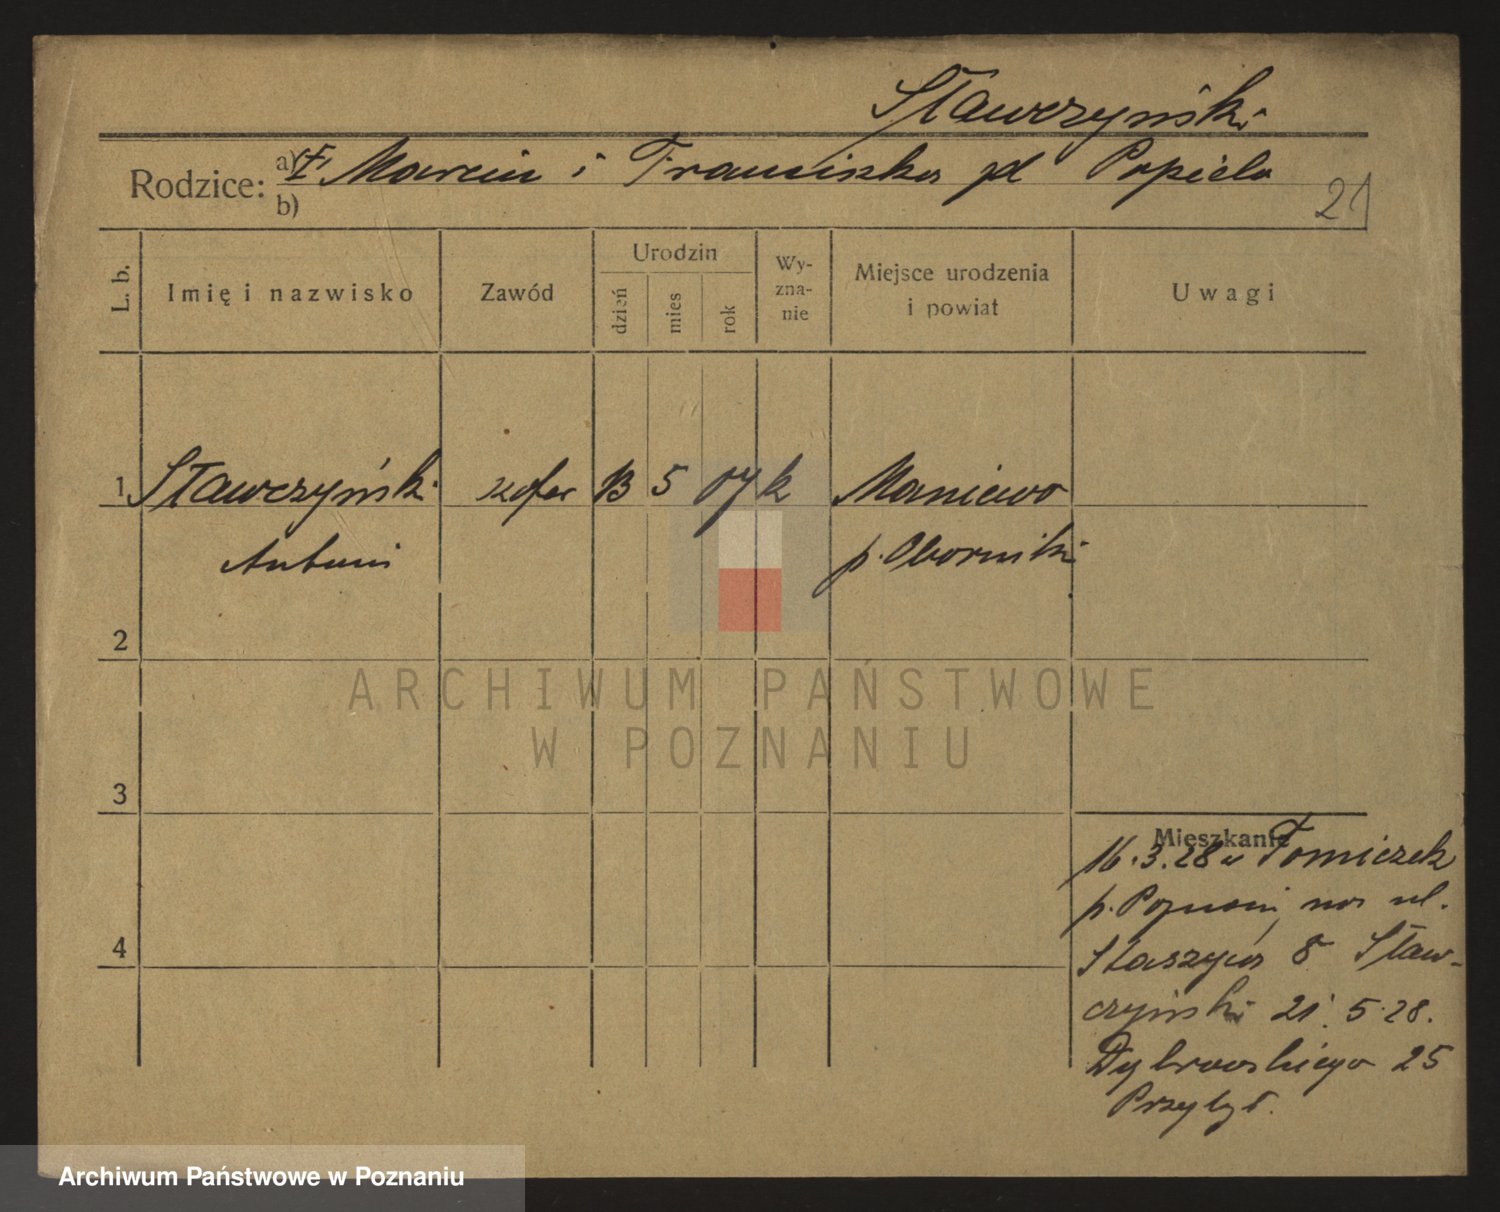 Sławczyński
Rodzice: a) Marcin i Franciszka zd Popiela
b)
21
L. b.
Imię i nazwisko
Zawód
Urodzin
dzień
mies
rok
Wy-
zna-
nie
Miejsce urodzenia
i powiat
Uwagi
1 Sławczyński szofer 13 5 07 k Maniewo
Antoni p. Oborniki
2
ARCHIWUM PAŃSTWOWE
W POZNANIU
3
Mieszkanie
16.3.28 u Tomiczek
p. Poznań, na ul.
Staszyca 8 Sław-
czyński 21.5.28.
Dąbrowskiego 25
Przybył.
4
Archiwum Państwowe w Poznaniu